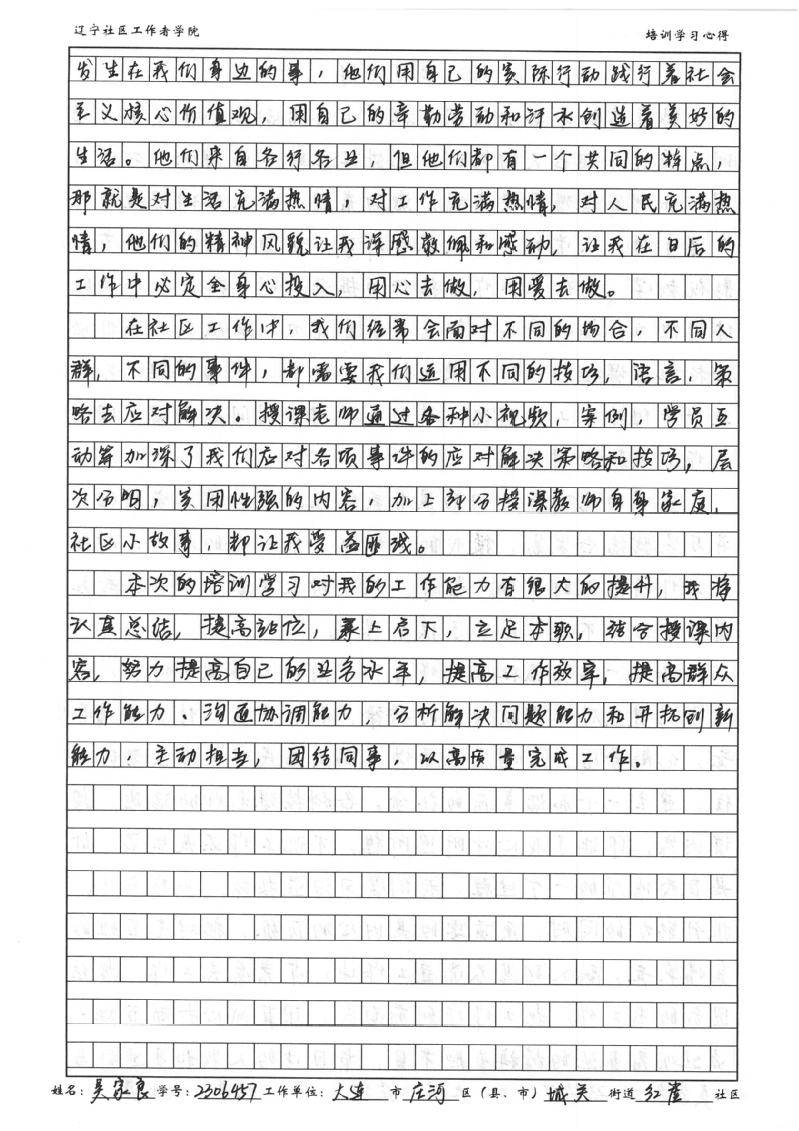 辽宁社区工作者学院 培训学习心得
发生在我们身边的事，他们用自己的实际行动践行着社会
主义核心价值观，用自己的辛勤劳动和汗水创造着美好的
生活。他们来自各行各业，但他们都有一个共同的特点，
那就是对生活充满热情，对工作充满热情，对人民充满热
情，他们的精神风貌让我深感敬佩和感动，让我在日后的
工作中必定全身心投入，用心去做，用爱去做。
在社区工作中，我们经常会面对不同的场合，不同人
群，不同的事件，都需要我们运用不同的技巧，语言，策
略去应对解决。授课老师通过各种小视频，案例，学员互
动等加深了我们应对各项事件的应对解决策略和技巧，层
次分明，实用性强的内容，加上部分授课教师自身家庭，
社区小故事，都让我受益匪浅。
本次的培训学习对我的工作能力有很大的提升，我将
认真总结，提高站位，承上启下，立足本职，结合授课内
容，努力提高自己的业务水平，提高工作效率，提高群众
工作能力、沟通协调能力，分析解决问题能力和开拓创新
能力，主动担当，团结同事，以高质量完成工作。
姓名：吴家良 学号：2306457 工作单位：大连 市 庄河 区（县、市） 城关 街道 红崖 社区